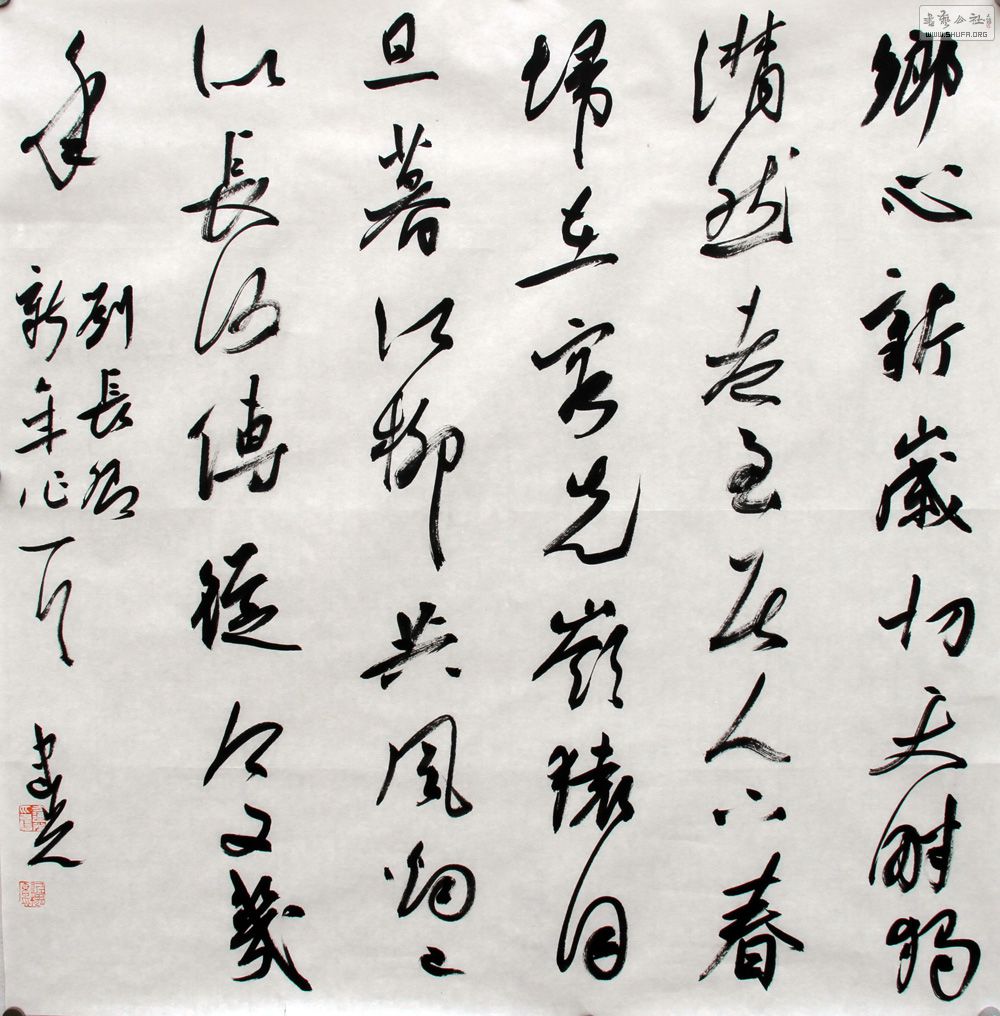 鄉心新歲切天時獨
潸然老至居人下春
歸在客先嶺猿同
旦暮江柳共風煙已
似長沙傅從今又幾
年
劉長卿
新年作一首
書藝公社
WWW.SHUFA.ORG